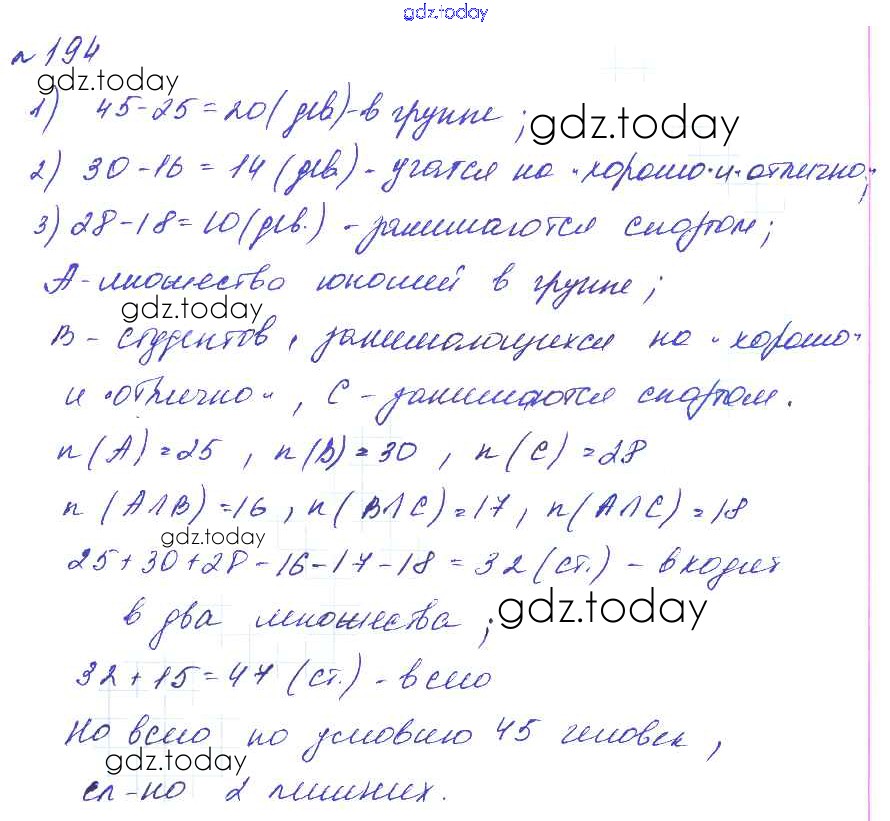 gdz.today
№ 194
gdz.today
1) 45-25=20(дев)-в группе; gdz.today
2) 30-16=14(дев)-учатся на "хорошо" и "отлично";
3) 28-18=10(дев.)-занимаются спортом;
А-множество юношей в группе;
gdz.today
В-студентов, занимающихся на "хорошо"
и "отлично", С-занимаются спортом.
n(A)=25, n(B)=30, n(C)=28
n(A∩B)=16, n(B∩C)=17, n(A∩C)=18
gdz.today
25+30+28-16-17-18=32(ст.)-входят
в два множества; gdz.today
32+15=47(ст.)-всего
Но всего по условию 45 человек,
gdz.today
сл-но 2 лишних.